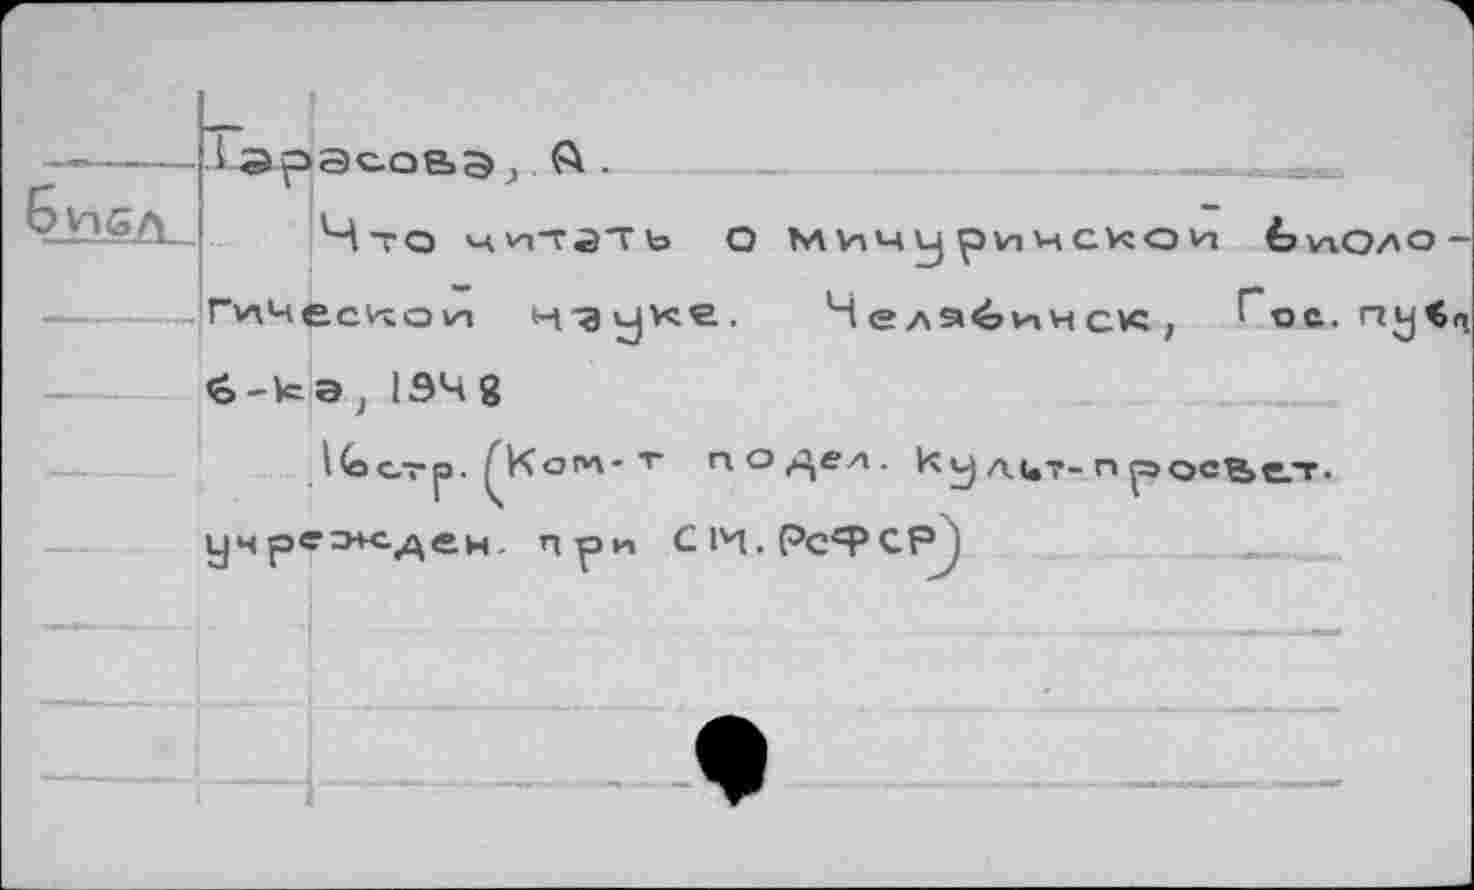 Тарасова, А.
Библ
Что читать о мичуринской биоло-
гической науке. Челябинск, Гос. публ
б-ка, 1948
16 стр. (Ком-т по дел. культ-просвет.
учрежден. при СМ. РСФСР)